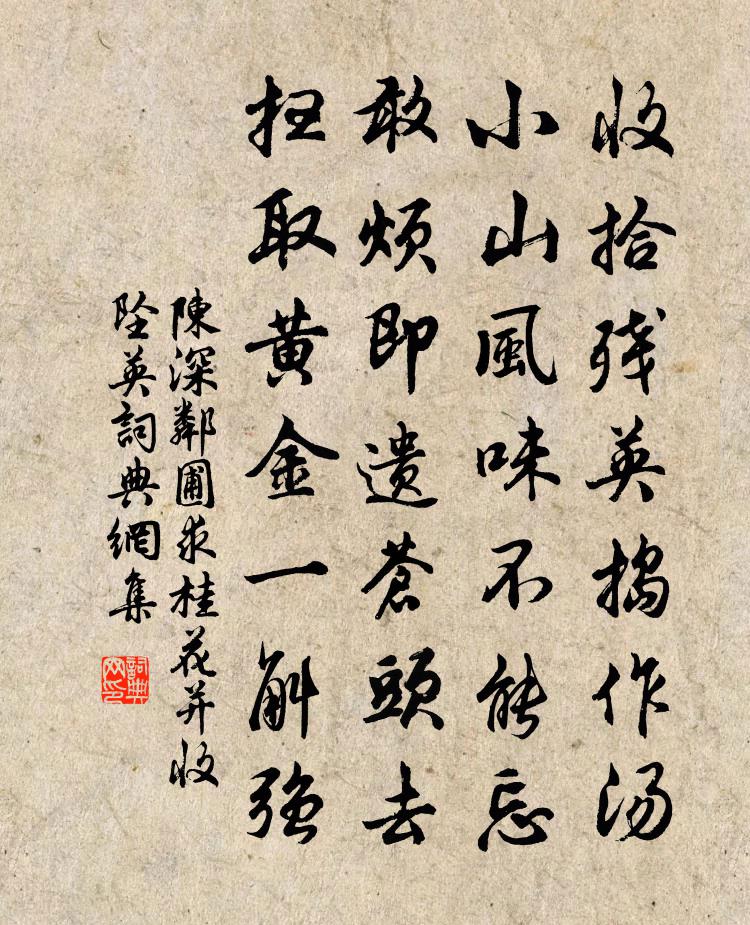 收拾残英搗作汤
小山風味不能忘
敢烦即遗蒼頭去
扫取黄金一斛强
陳深鄰圃求桂花并收
坠英詞典網集
詞典
网印